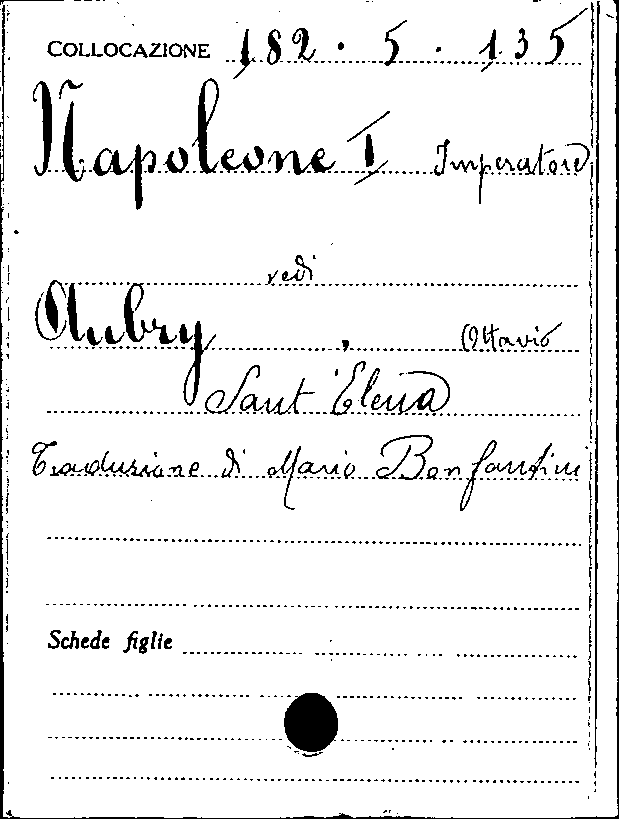 COLLOCAZIONE 182 . 5 . 135
Napoleone I Imperatore
vedi
Aubry , Ottavio
Sant'Elena
Traduzione di Mario Bonfantini
Schede figlie